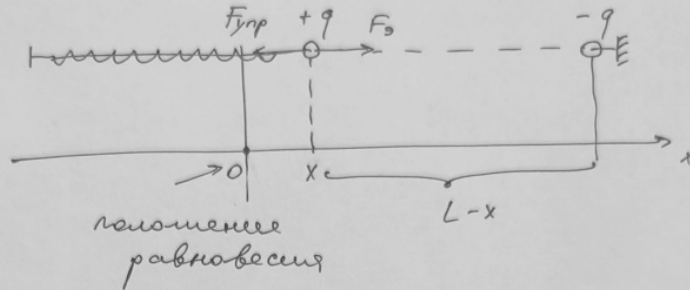 Fупр +q Fэ -q
O x x
L-x
положение
равновесия